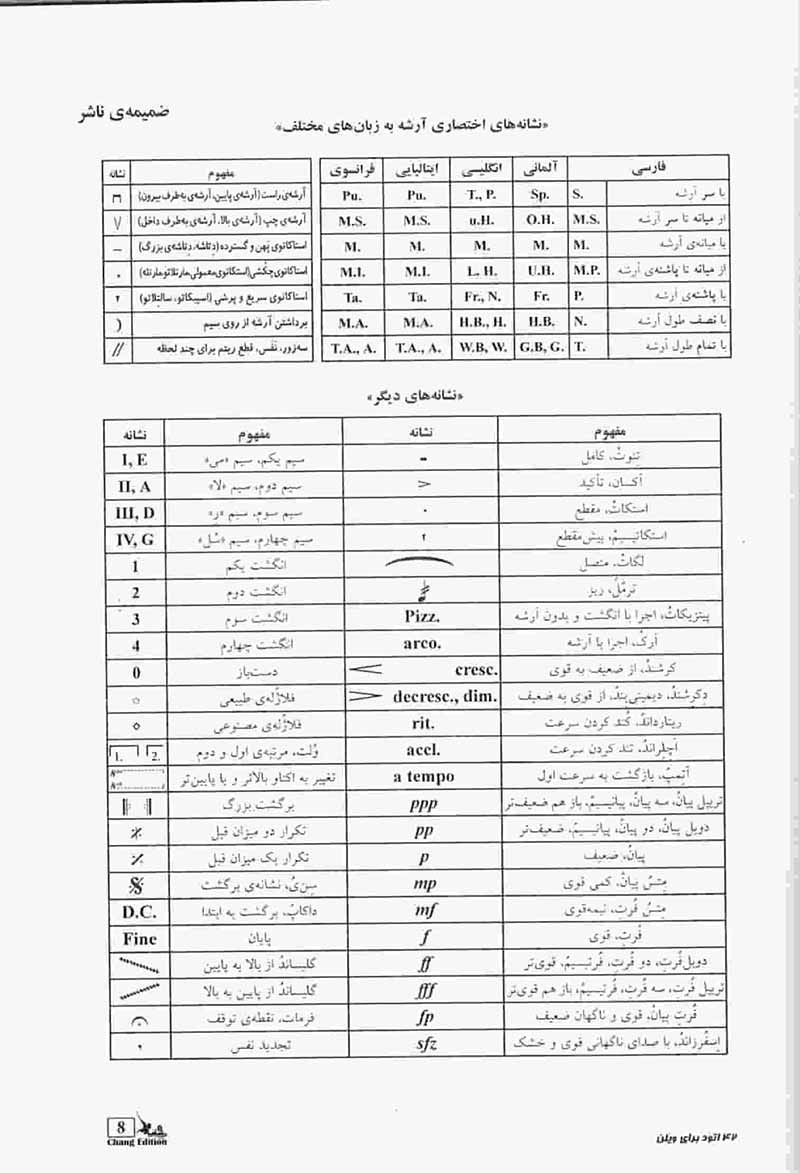 ضمیمه‌ی ناشر
«نشانه‌های اختصاری آرشه به زبان‌های مختلف»
فارسی آلمانی انگلیسی ایتالیایی فرانسوی
با سر آرشه S. Sp. T., P. Pu. Pu.
از میانه تا سر آرشه M.S. O.H. u.H. M.S. M.S.
با میانه‌ی آرشه M. M. M. M. M.
از میانه تا پاشنه‌ی آرشه M.P. U.H. L. H. M.I. M.I.
با پاشنه‌ی آرشه P. Fr. Fr., N. Ta. Ta.
با نصف طول آرشه N. H.B. H.B., H. M.A. M.A.
با تمام طول آرشه T. G.B, G. W.B, W. T.A., A. T.A., A.
مفهوم نشانه
آرشه‌ی راست (آرشه‌ی پایین، آرشه‌ی به‌طرف بیرون)
آرشه‌ی چپ (آرشه‌ی بالا، آرشه‌ی به‌طرف داخل) V
استاکاتوی پهن و گسترده (دِتاشه، دِتاشه‌ی بزرگ) –
استاکاتوی چکُشی (استکاتوی معمولی، مارتلاتو، مارتله) .
استاکاتوی سریع و پرشی (اسپیکاتو، سالتلاتو)
برداشتن آرشه از روی سیم )
سه‌زور، نَفَس، قطع ریتم برای چند لحظه //
«نشانه‌های دیگر»
مفهوم نشانه مفهوم نشانه
تِنوتُ، کامل - سیم یکم، سیم «می» I, E
آکسان، تأکید > سیم دوم، سیم «لا» II, A
استکاتُ، مقطع . سیم سوم، سیم «ر» III, D
استکاتیسیمُ، بیش‌مقطع سیم چهارم، سیم «سُل» IV, G
لگاتُ، متصل انگشت یکم 1
تِرمُلُ، ریز انگشت دوم 2
پیتزیکاتُ، اجرا با انگشت و بدون آرشه Pizz. انگشت سوم 3
آرکُ، اجرا با آرشه arco. انگشت چهارم 4
کرشندُ، از ضعیف به قوی cresc. دست‌باز 0
دِکرشندُ، دیمینی‌یندُ، از قوی به ضعیف decresc., dim. فلاژُله‌ی طبیعی ○
ریتارداندُ، کُند کردن سرعت rit. فلاژُله‌ی مصنوعی ◇
آچلِراندُ، تند کردن سرعت accl. وُلت، مرتبه‌ی اول و دوم 1. 2.
آتِمپُ، بازگشت به سرعت اول a tempo تغییر به اکتاو بالاتر و یا پایین‌تر
تریپل پیانُ، سه پیانُ، پیانیسیمُ، باز هم ضعیف‌تر ppp برگشت بزرگ
دوبل پیانُ، دو پیانُ، پیانیسیمُ، ضعیف‌تر pp تکرار دو میزان قبل
پیانُ، ضعیف p تکرار یک میزان قبل
مِتسُ پیانُ، کمی قوی mp سِنیُ، نشانه‌ی برگشت
مِتسُ فُرتِ، نیمه‌قوی mf داکاپُ، برگشت به ابتدا D.C.
فُرتِ، قوی f پایان Fine
دوبل‌فُرتِ، دو فُرتِ، فُرتیسیمُ، قوی‌تر ff گلیساندُ از بالا به پایین
تریپل فُرتِ، سه فُرتِ، فُرتیسیمُ، باز هم قوی‌تر fff گلیساندُ از پایین به بالا
فُرتِ پیانُ، قوی و ناگهان ضعیف fp فرمات، نقطه‌ی توقف
اِسفُرزاندُ، با صدای ناگهانی قوی و خشک sfz تجدید نفس ,
8
Chang Edition
۴۲ اتود برای ویلن